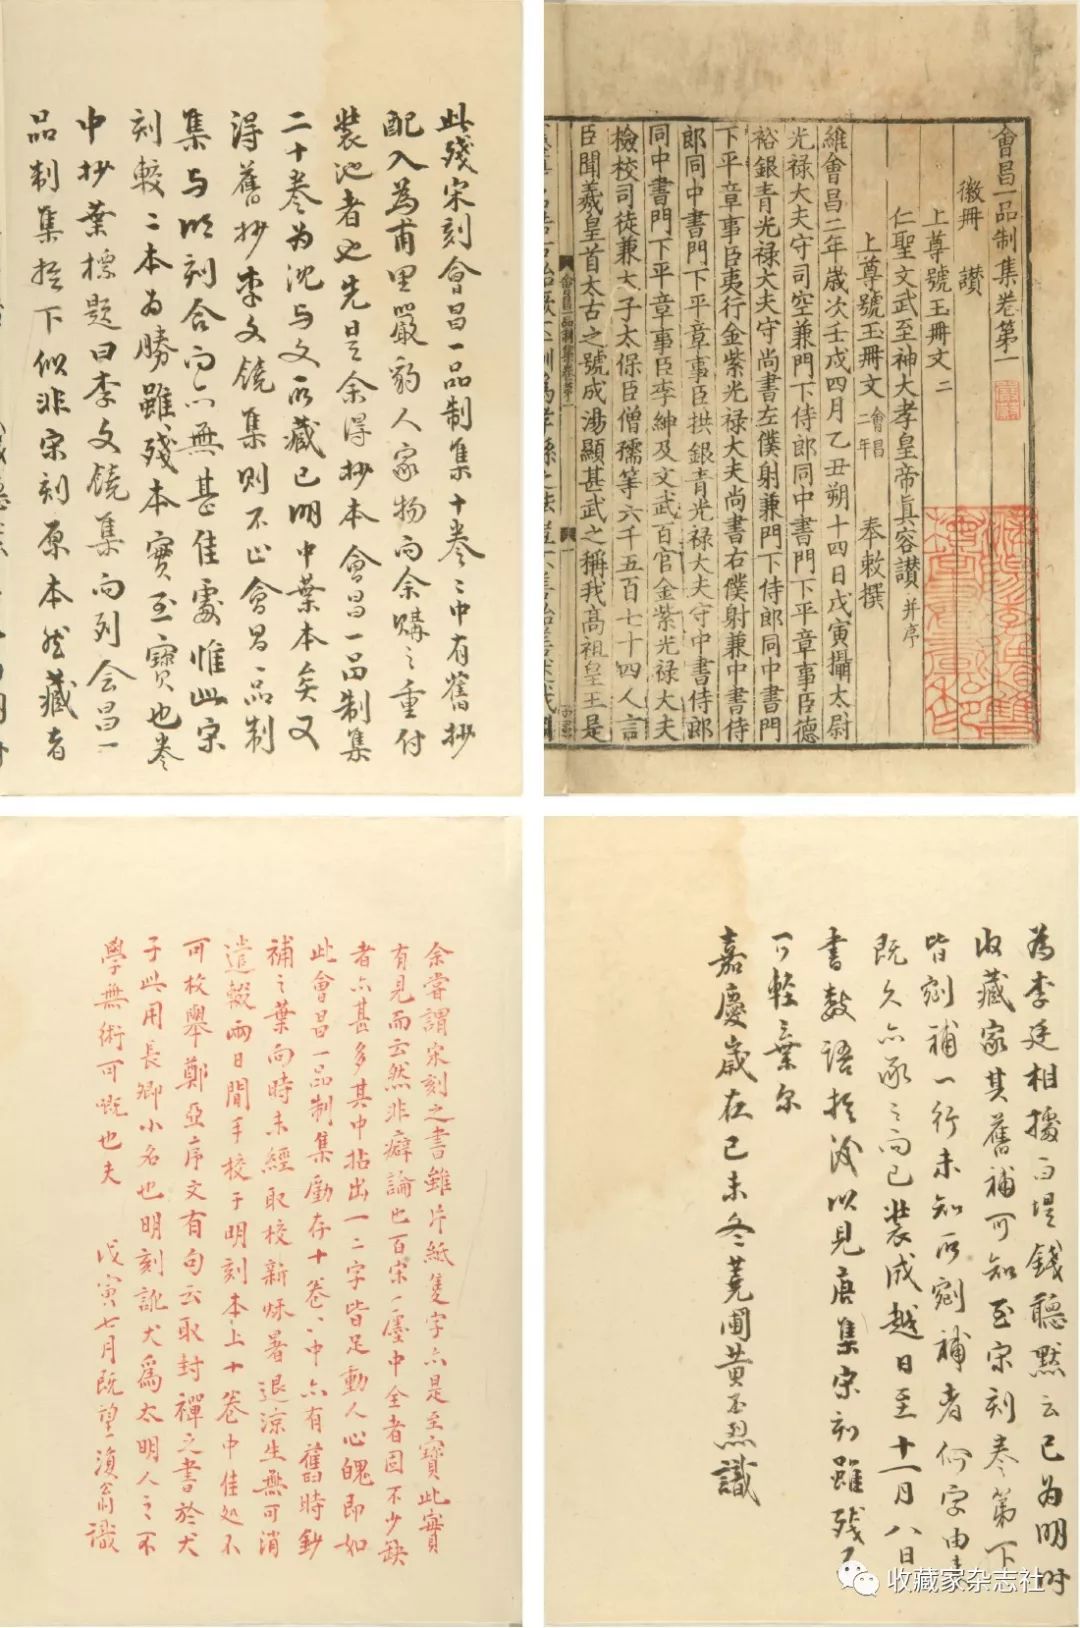 會昌一品制集卷第一
徽冊 讃
上尊號玉冊文二
仁聖文武至神大孝皇帝真容讃并序
上尊號玉冊文會昌二年 奉敕撰
維會昌二年歲次壬戌四月乙丑朔十四日戊寅攝太尉
光禄大夫守司空兼門下侍郎同中書門下平章事臣德
裕銀青光禄大夫守尚書左僕射兼門下侍郎同中書門
下平章事臣夷行金紫光禄大夫尚書右僕射兼中書侍
郎同中書門下平章事臣拱銀青光禄大夫守中書侍郎
同中書門下平章事臣李紳及文武百官金紫光禄大夫
檢校司徒兼太子太保臣僧孺等六千五百七十四人言
臣聞羲皇首太古之號成湯顯甚武之稱我高祖皇王是
此殘宋刻會昌一品制集十卷〻中有舊抄
配入為甫里嚴豹人家物而余購之重付
裝池者也先是余得抄本會昌一品制集
二十卷為沈与文所藏已明中葉本矣又
得舊抄李文饒集則不止會昌一品制
集与明刻合而亦無甚佳處惟此宋
刻較二本為勝雖殘本實至寶也卷
中抄葉標題曰李文饒集而列會昌一
品制集於下似非宋刻原本然藏者
為李廷相據白堤錢聽默云已為明時
收藏家其舊補可知至宋刻卷第下
皆剜補一行未知所剜補者何字由來
既久亦承之而已裝成越日至十一月八日
書數語於後以見唐集宋刻雖殘不
可輕棄尔
嘉慶歲在己未冬蕘圃黃丕烈識
余嘗謂宋刻之書雖片紙隻字亦是至寶此實
有見而云然非癖論也百宋一廛中全者固不少缺
者亦甚多其中拈出一二字皆足動人心魄即如
此會昌一品制集勵存十卷〻中亦有舊時鈔
補之葉向時未經取校新秌暑退涼生無可消
遣輟兩日間手校于明刻本上十卷中佳处不
可枚舉鄭亞序文有句云取封禪之書於犬
子此用長卿小名也明刻訛犬為太明人之不
學無術可嘅也夫 戊寅七月既望一復翁識
收藏家杂志社